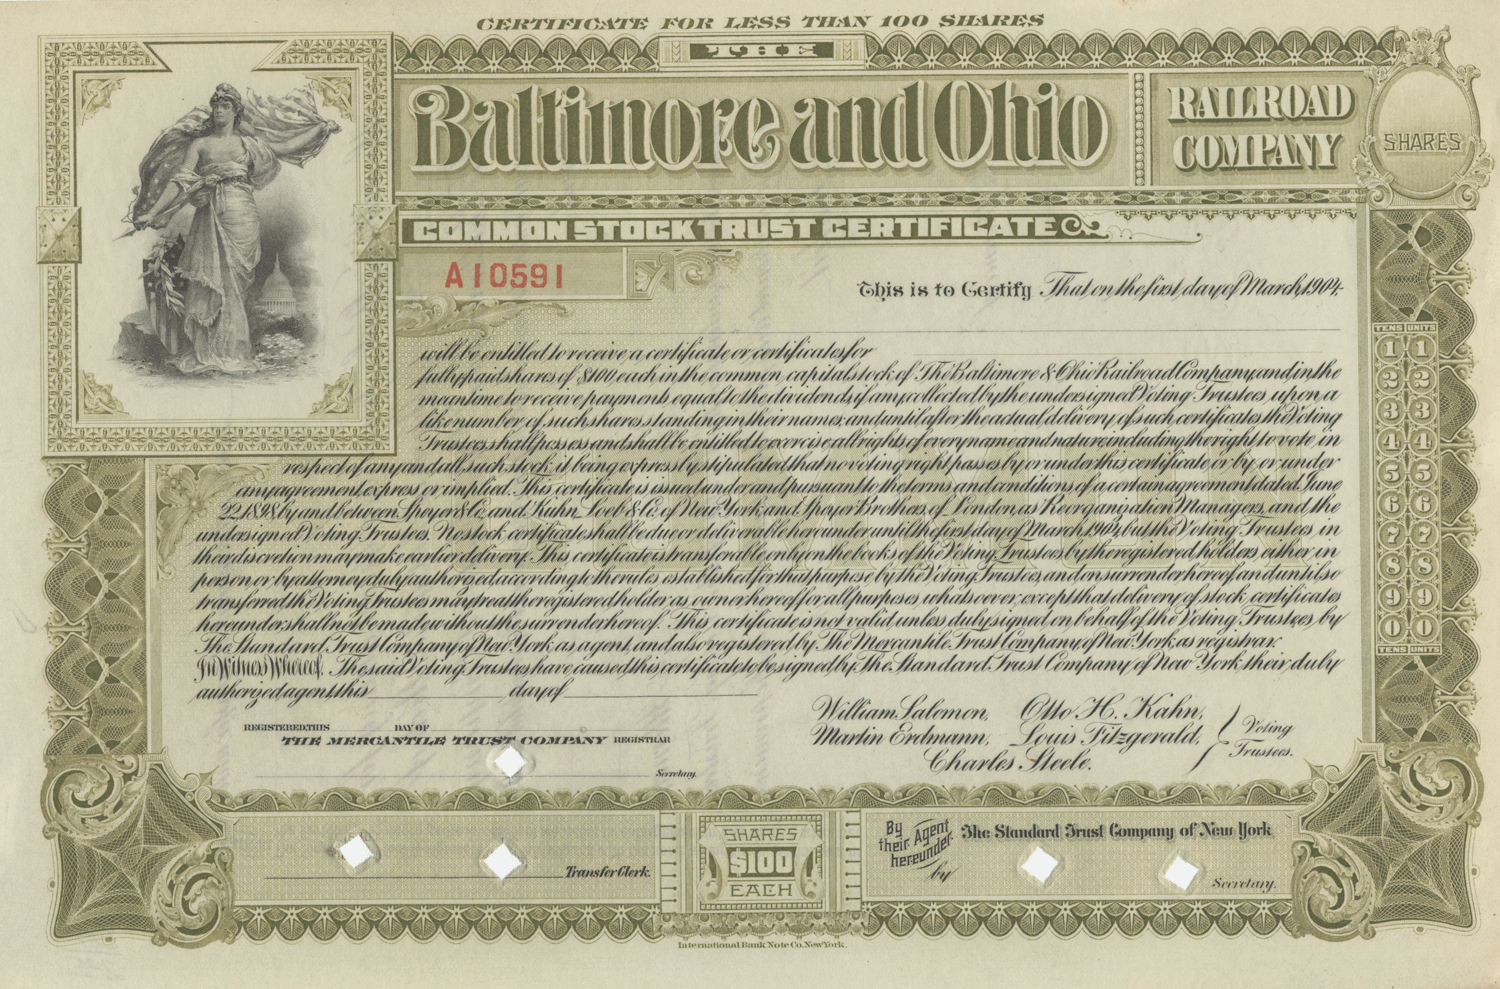 CERTIFICATE FOR LESS THAN 100 SHARES
THE
Baltimore and Ohio
RAILROAD
COMPANY
SHARES
COMMON STOCK TRUST CERTIFICATE
A10591
This is to Certify That on the first day of March, 1904,
will be entitled to receive a certificate or certificates for
fully paid shares of $100 each in the common capital stock of The Baltimore & Ohio Railroad Company, and in the
meantime to receive payments equal to the dividends, if any, collected by the undersigned Voting Trustees upon a
like number of such shares standing in their names; and until after the actual delivery of such certificates the Voting
Trustees shall possess and shall be entitled to exercise all rights of every name and nature, including the right to vote in
respect of any and all such stock; it being expressly stipulated that no voting right passes by or under this certificate or by or under
any agreement, express or implied. This certificate is issued under and pursuant to the terms and conditions of a certain agreement dated June
22, 1898, by and between Speyer & Co. and Kuhn, Loeb & Co. of New York and Speyer Brothers, of London, as Reorganization Managers, and the
undersigned Voting Trustees. No stock certificate shall be due or deliverable hereunder until the first day of March 1904, but the Voting Trustees in
their discretion may make earlier delivery. This certificate is transferable only on the books of the Voting Trustees by the registered holders either in
person or by attorney duly authorized according to the rules established for that purpose by the Voting Trustees, and on surrender hereof; and until so
transferred the Voting Trustees may treat the registered holder as owner hereof for all purposes whatsoever, except that delivery of stock certificates
hereunder shall not be made without the surrender hereof. This certificate is not valid unless duly signed on behalf of the Voting Trustees, by
The Standard Trust Company of New York as agent, and also registered by The Mercantile Trust Company, of New York as registrar.
In Witness Whereof, The said Voting Trustees have caused this certificate to be signed by The Standard Trust Company of New York their duly
authorized agent, this day of
William Salomon, Otto H. Kahn,
Martin Erdmann, Louis Fitzgerald,
Charles Steele.
Voting
Trustees.
REGISTERED, THIS DAY OF
THE MERCANTILE TRUST COMPANY REGISTRAR
Secretary.
Transfer Clerk.
SHARES
$100
EACH
By
their Agent
hereunder
The Standard Trust Company of New York
by
Secretary.
TENS UNITS
1 1
2 2
3 3
4 4
5 5
6 6
7 7
8 8
9 9
0 0
TENS UNITS
International Bank Note Co. New York.